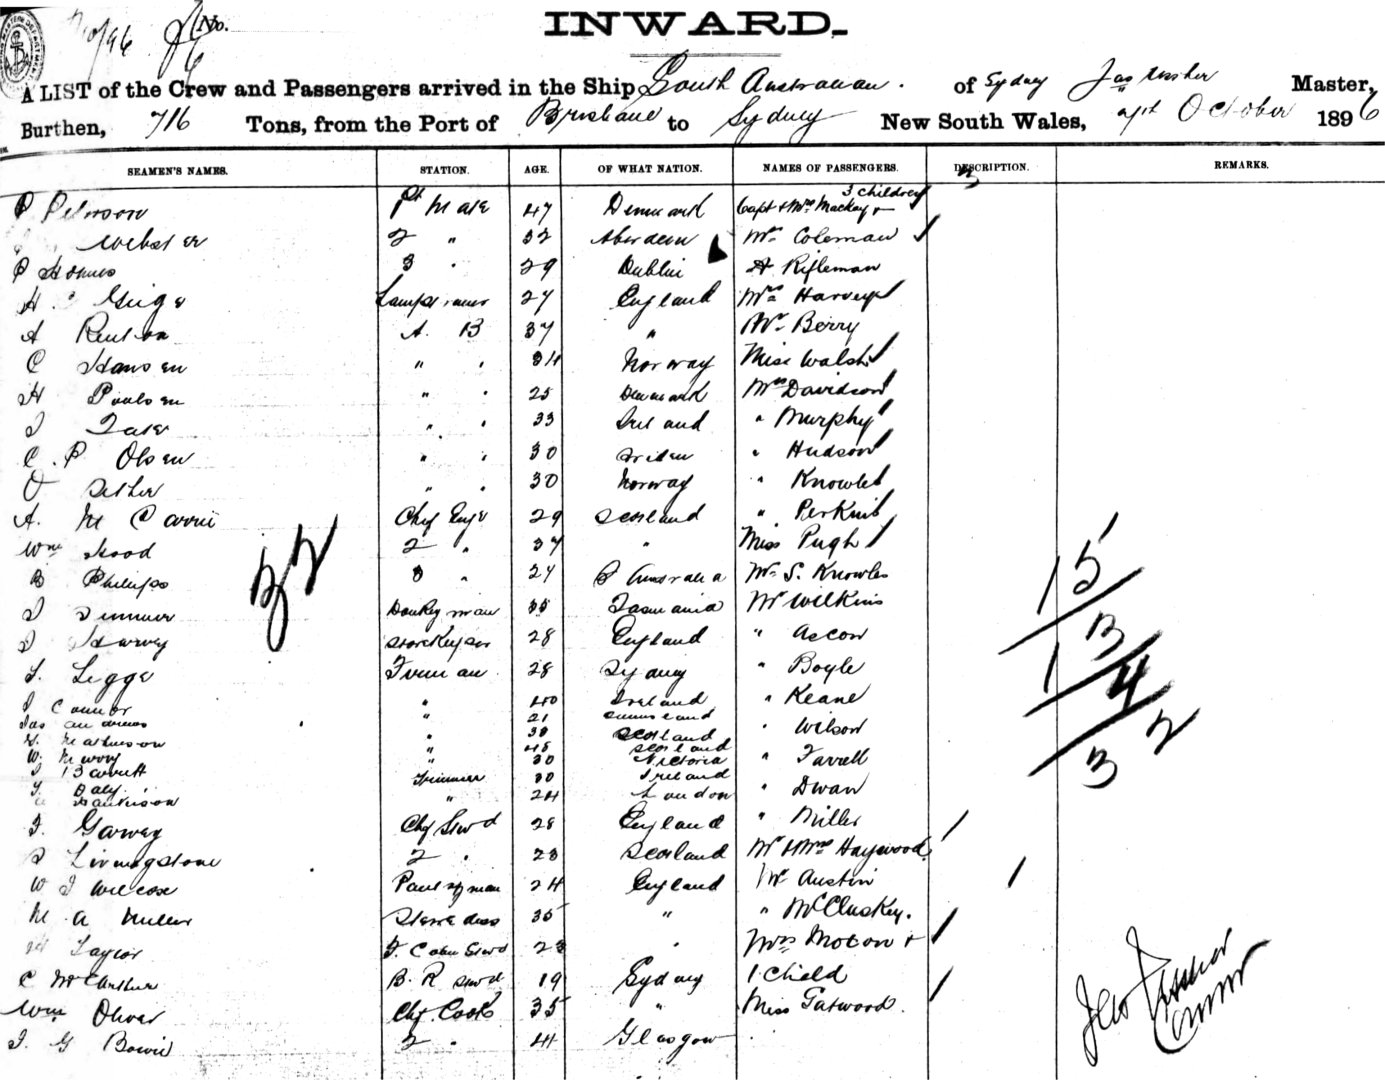 No.
INWARD.
A LIST of the Crew and Passengers arrived in the Ship South Australian. of Sydney Master,
Burthen, 716 Tons, from the Port of Brisbane to Sydney New South Wales, October 1896
SEAMEN'S NAMES. STATION. AGE. OF WHAT NATION. NAMES OF PASSENGERS. DESCRIPTION. REMARKS.
3 children
P Peterson 1st Mate 47 Denmark Capt & Mrs Mackay +
Webster 2 " 32 Aberdeen Mr Coleman
P Holmes 3 " 29 Dublin A Rifleman
H Lamptrimer 27 England Mrs Harvey
A Renton A. B 37 " Mr Berry
C Hansen " " 34 Norway Miss Walsh
H Poulsen " " 25 Denmark Mrs Davidson
J Tate " " 33 Ireland " Murphy
C. P Olsen " " 30 " Hudson
O " " 30 Norway " Knowles
A. Chf Engr 29 Scotland " Perkins
Wm Hood 2 " 37 " Miss Pugh
B Phillips 3 " 27 S Australia Mr S. Knowles
Donkeyman 35 Tasmania Mr Wilkins
J Harvey Storekeeper 28 England " Ascon
T. Legge Fireman 28 Sydney " Boyle
J Connor " 40 Ireland " Keane
Jas Andrews " 21
Mathieson " 38 Scotland " Wilson
W. " 45 Scotland
J Barrett " 30 Victoria " Farrell
T Daly Trimmer 30 Ireland
" 24 London " Dwan
J. Garvey Chf Stwd 28 England " Miller
D Livingstone 2 " 23 Scotland Mr & Mrs Haywood
W J Wilcox Pantryman 24 England Mr Austin
M. A Miller Stewardess 35 " " McCluskey.
H Taylor F. Cabin Stwd 23 " Mrs Moton +
C McArthur B. R Stwd 19 Sydney 1 Child
Wm Oliver Chf Cook 35 " Miss Gatwood.
J. G Bowie 2 " 44 Glasgow
32
15
13
1 4
32